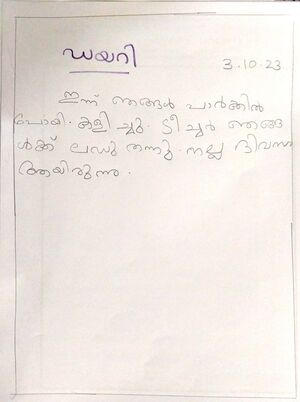 ഡയറി
3.10.23
ഇന്ന് ഞങ്ങൾ പാർക്കിൽ
പോയി. കളിച്ചു. ടീച്ചർ ഞങ്ങ
ൾക്ക് ലഡു തന്നു. നല്ല ദിവസ
മായിരുന്നു.